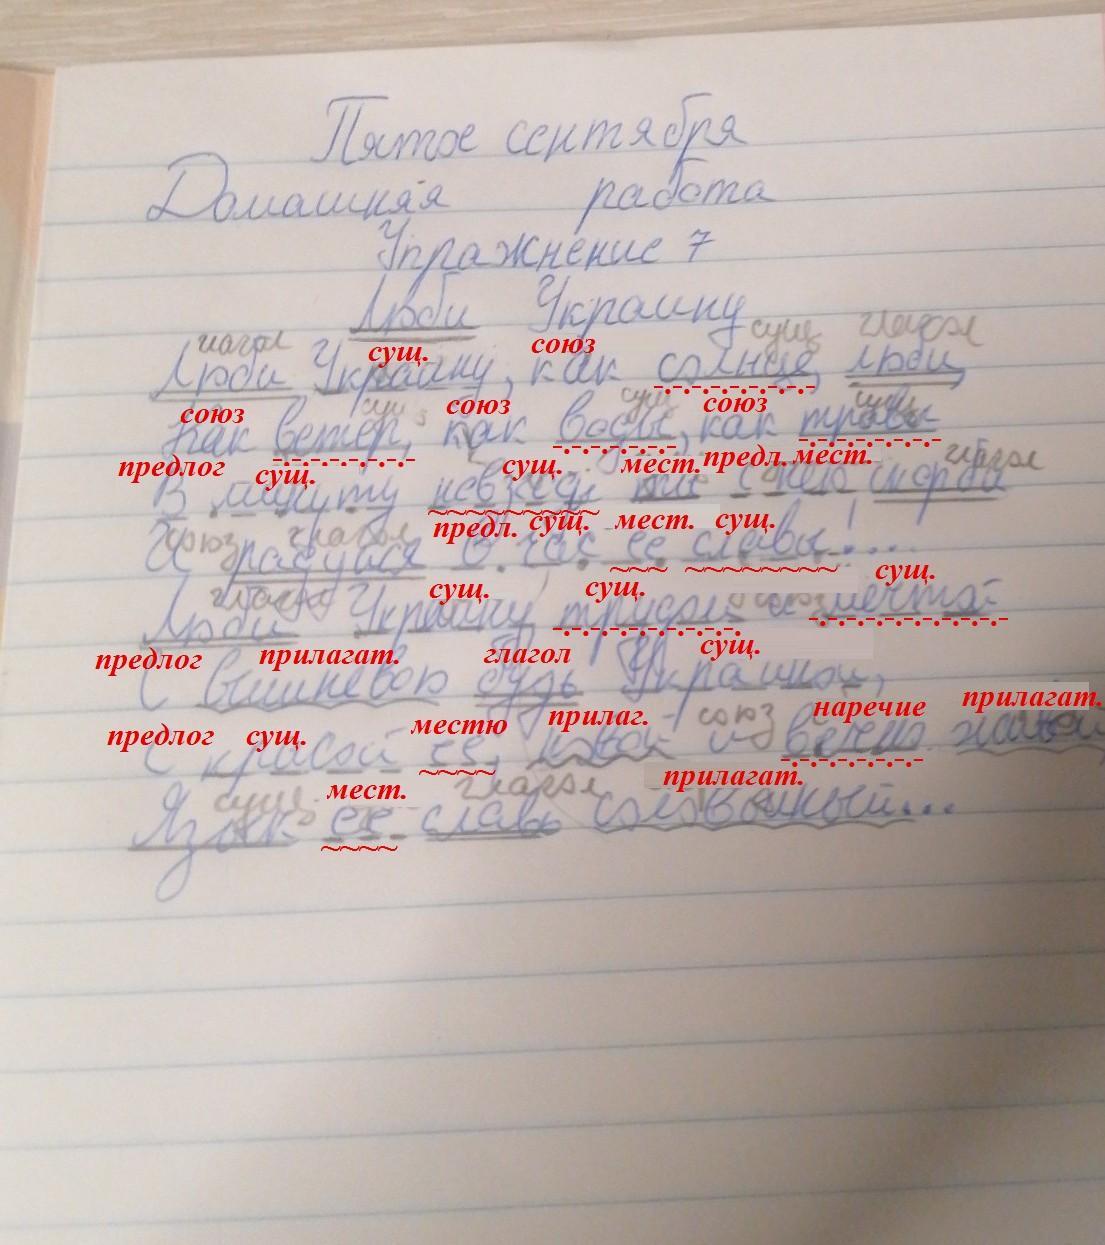 Пятое сентября
Домашняя работа
Упражнение 7
Люби Украину
глагол сущ глагол
сущ. союз
Люби Украину, как солнце, люби,
союз сущ союз сущ союз сущ
Как ветер, как воды, как травы
предлог сущ. сущ. мест. предл. мест. глагол
В минуту невзгоды ты с нею скорби
союз глагол предл. сущ. мест. сущ.
И радуйся в час ее славы!....
глагол сущ. сущ. союз сущ.
Люби Украину трудом и мечтой
предлог прилагат. глагол сущ.
С вишневою будь Украиной,
предлог сущ. местю прилаг. союз наречие прилагат.
С красой ее, новой и вечно живой
сущ. мест. глагол прилагат.
Язык ее славь соловьиный...